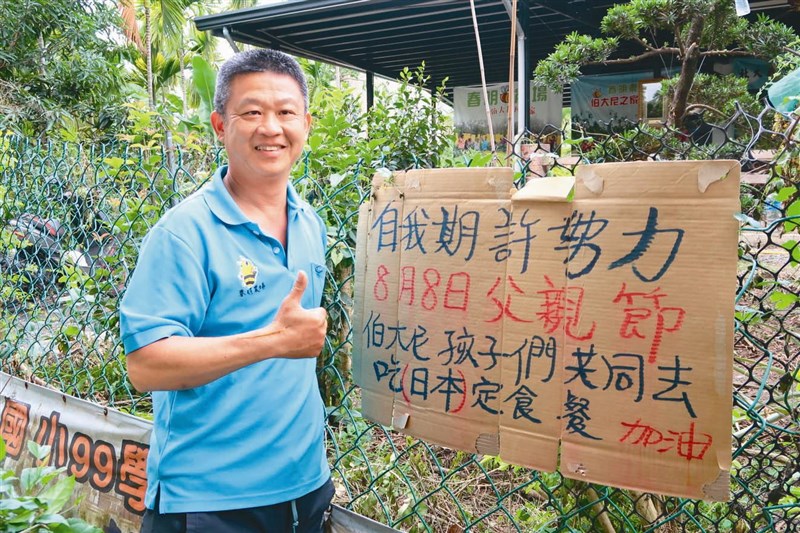 自我期許努力
8月8日父親節
伯大尼孩子們共同去
吃(日本)定食餐
加油
春明
場
伯大尼之家
國小99學